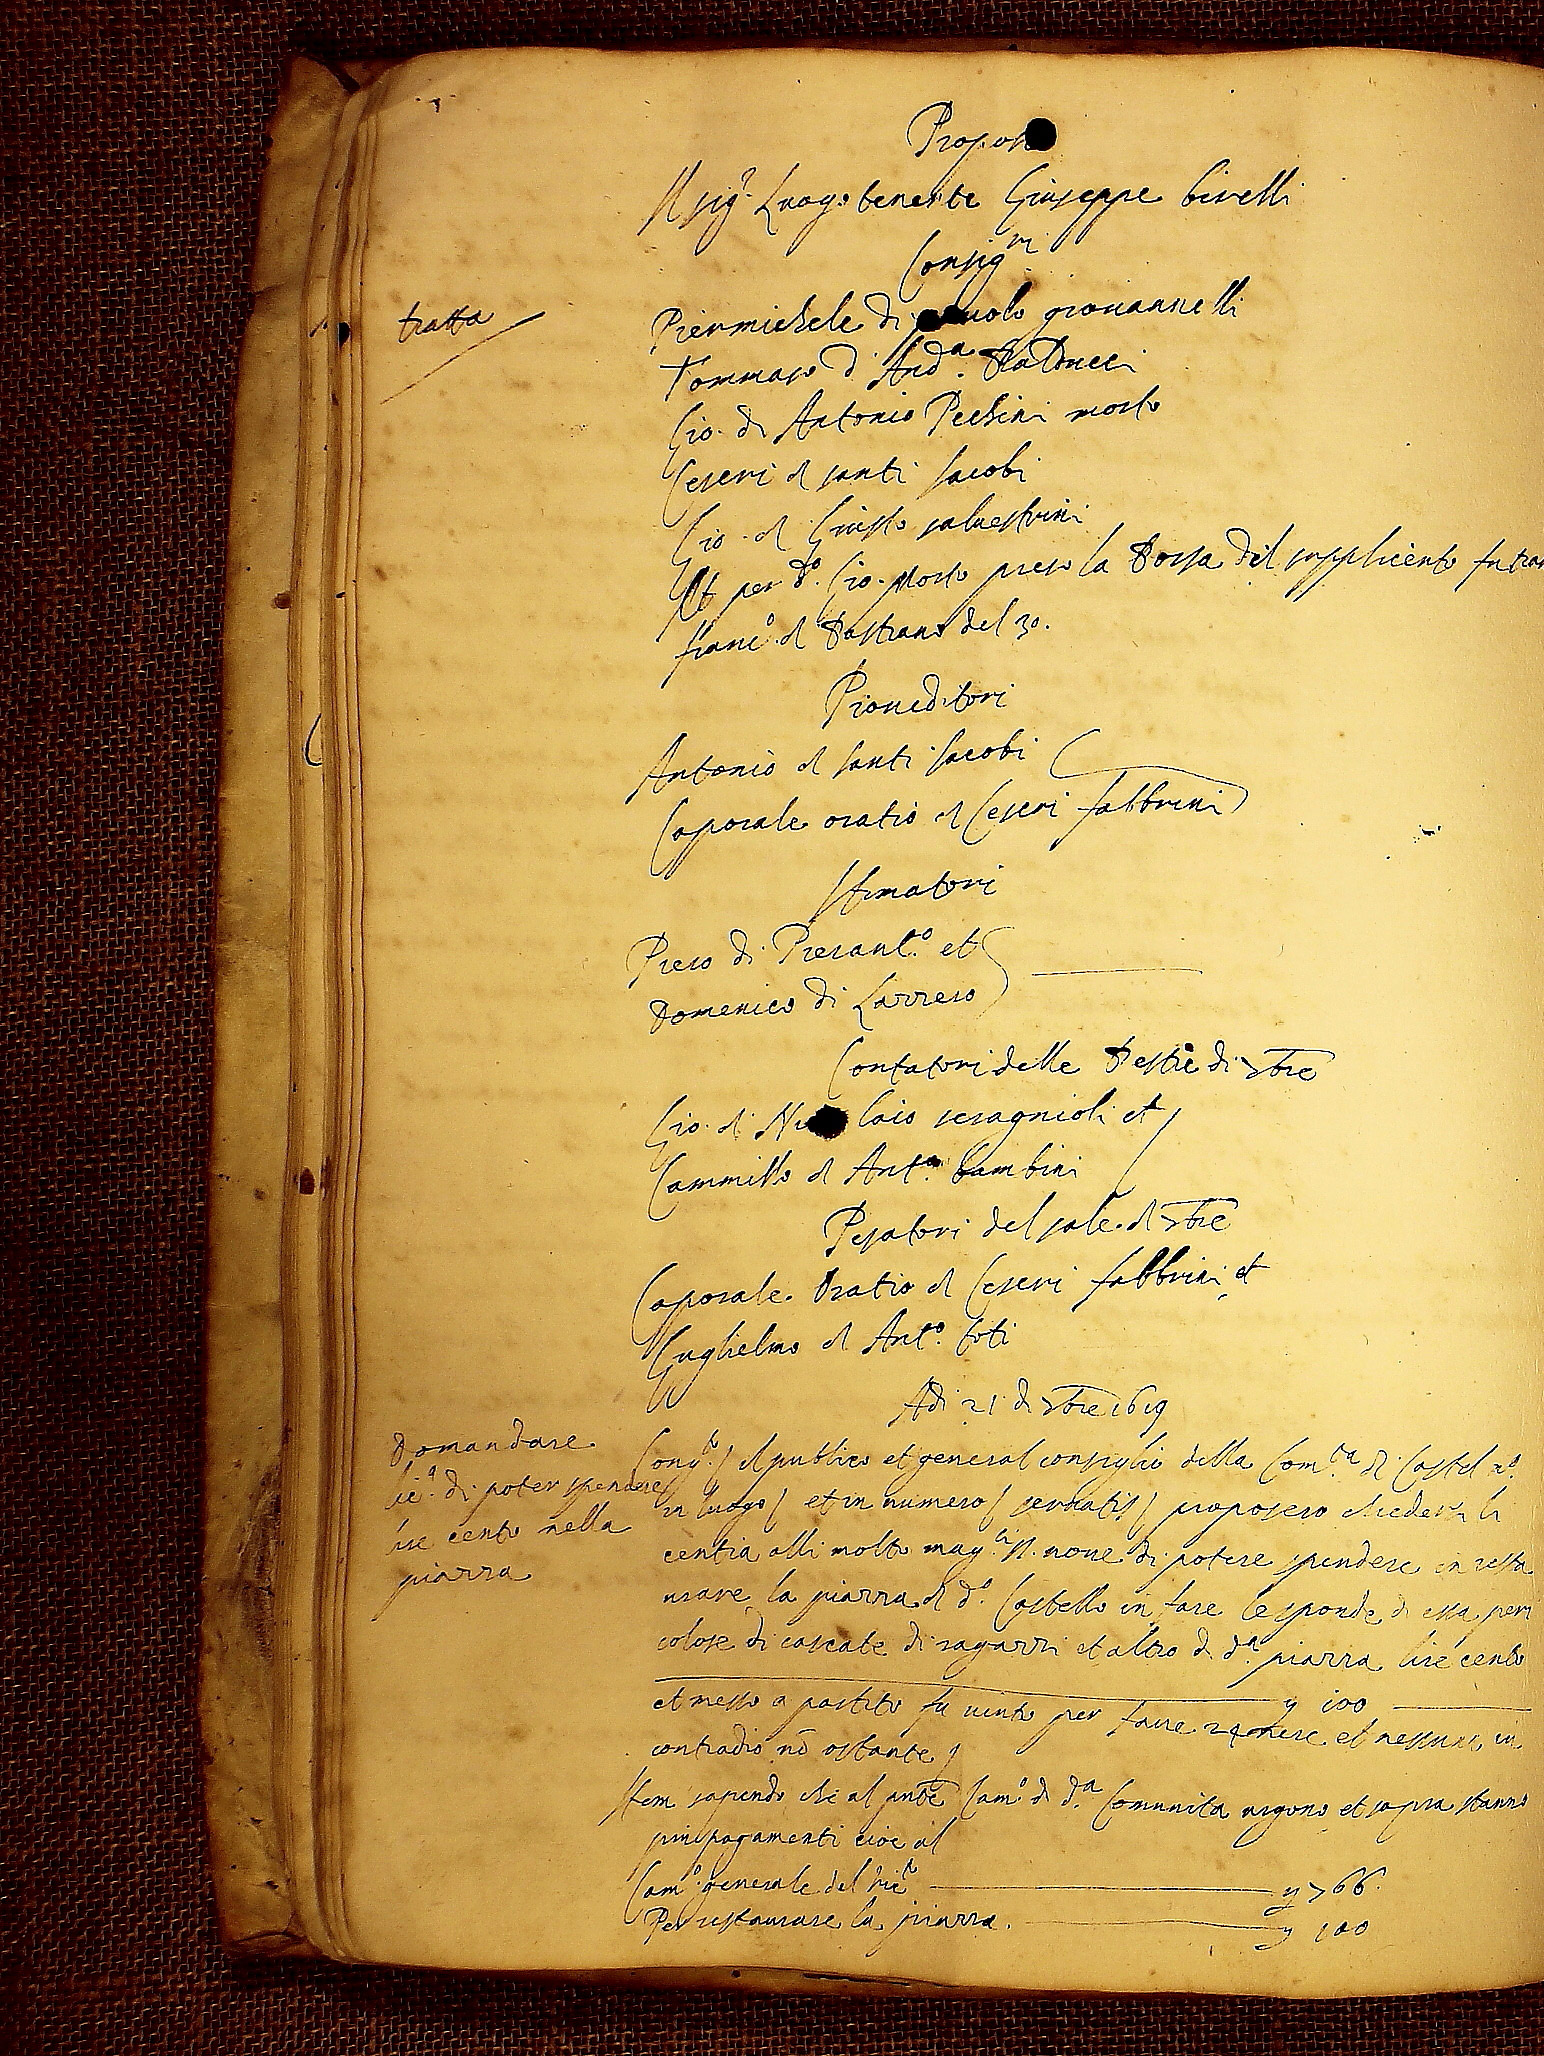 Propon
Il sigr. Luogotenente Giuseppe birelli
Consigri
tratta
Piermichele di pauolo giouannelli
Tommaso d Anda. Balducci
Gio. di Antonio Pechini morto
Ceseri d santi Jacobi
Gio. d Giusto saluestrini
Et per do. Gio. morto preso la Borsa del supplicento fu trat
franco. d Bastiano del 30.
Proueditori
Antonio d santi Jacobi
Caporale oratio d Ceseri fabbrini
Stimatori
Piero di Pieranto. et
Domenico di Lazzero
Contatori delle Bestie di 7bre
Gio. di Niccolaio seragnioli et
Cammillo d Anto. bambini
Pesatori del sale d 7bre
Caporale Oratio d Ceseri fabbrini et
Guglielmo d Anto. toti
Adi 21 di 7bre 1619
Domandare
lica. di poter spendere
lire cento nella
piazza
Congto. il publico et general consiglio della Comta. di Castel no.
in luogo et in numero seruatis proposero chiedersi li
centia alli molto magci. SS. noue di potere spendere in resta
urare la piazza d do. Castello in fare le sponde di essa peri
colose di cascate di ragazzi et altro d da. piazza lire cento
y 100
et messo a partito fu uinto per faue 24 nere et nessuna in
contrario nō ostante
Item sapendo che al pnte Camo. di da. Comunita urgono et sopra stanno
piu pagamenti cioe al
Camo. generale del Victo y 766
Per restaurare la piazza. y 100